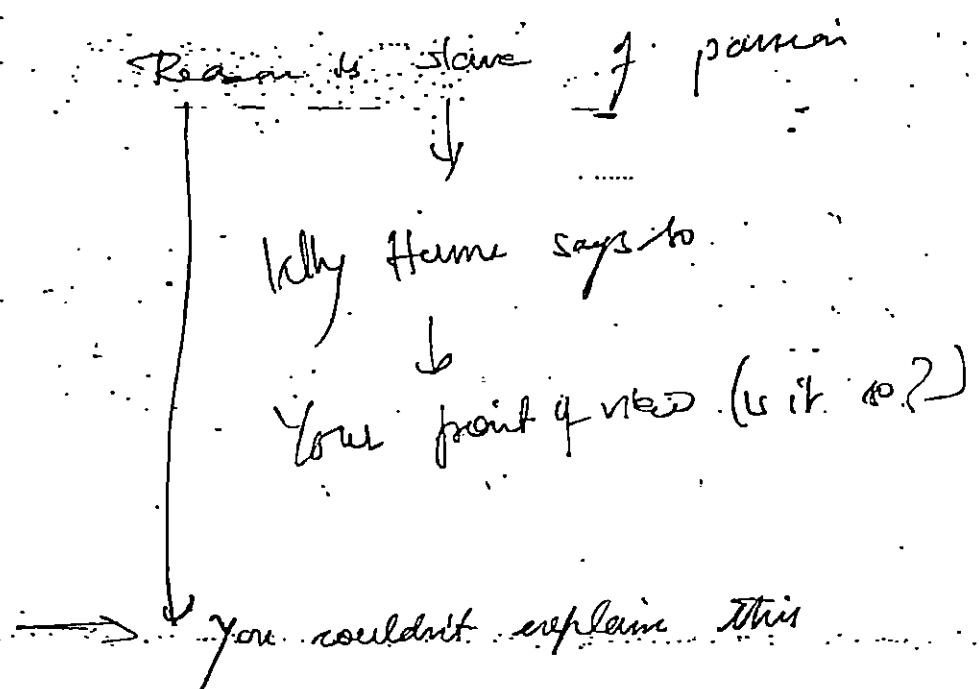 Reason is slave of passion
Why Hume says so
Your point of view (is it so?)
You couldn't explain this